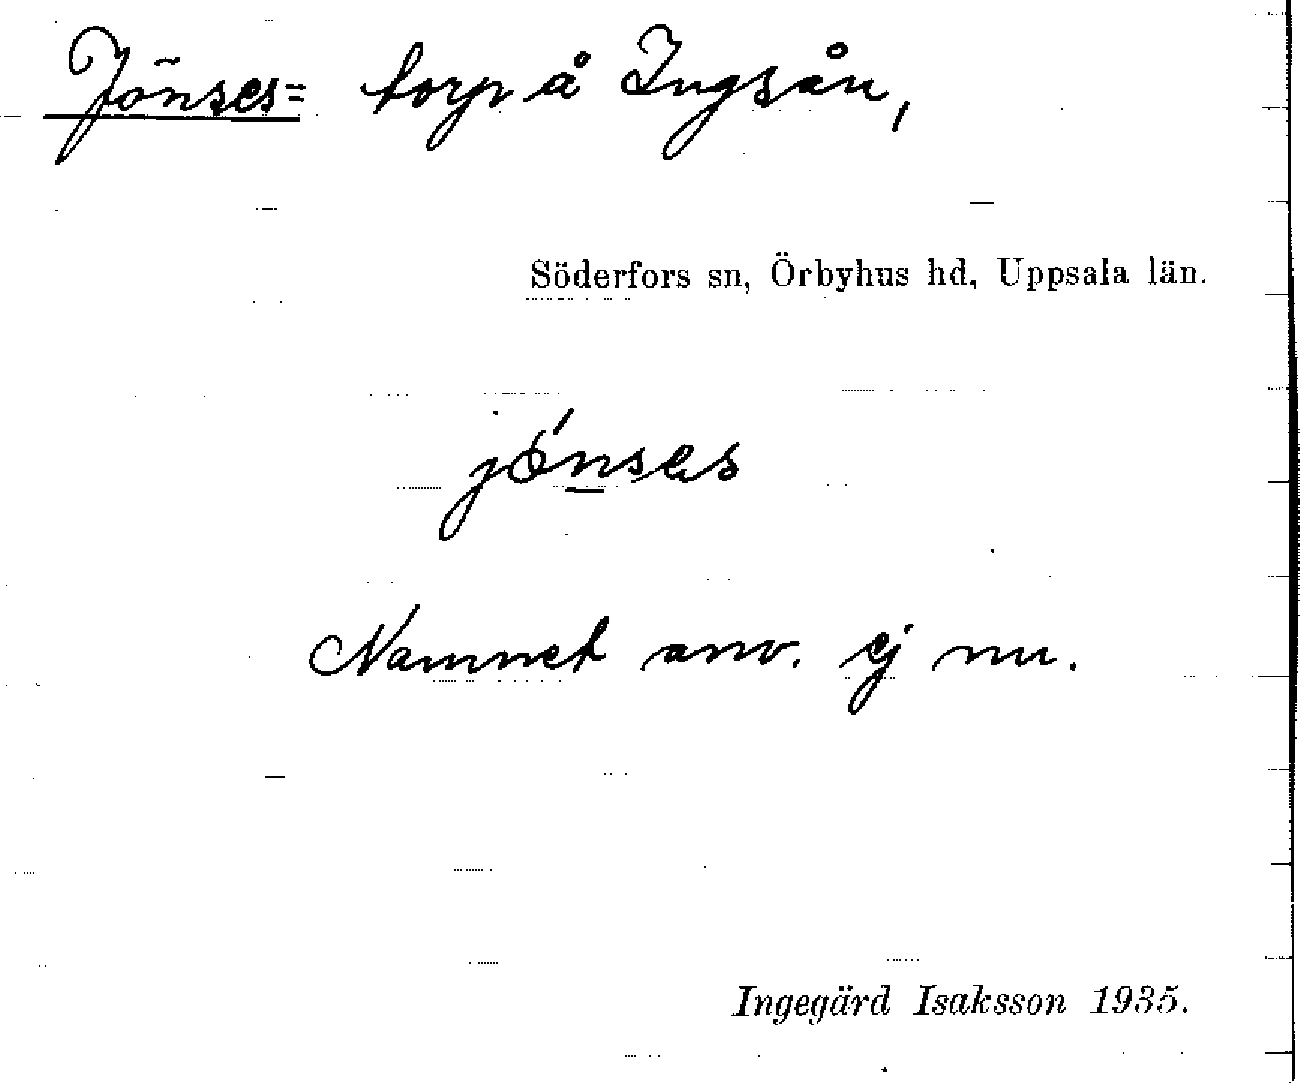 Jönses= torp å Ingsån,
Söderfors sn, Örbyhus hd, Uppsala län.
jǿnses
Namnet anv. ej nu.
Ingegärd Isaksson 1935.